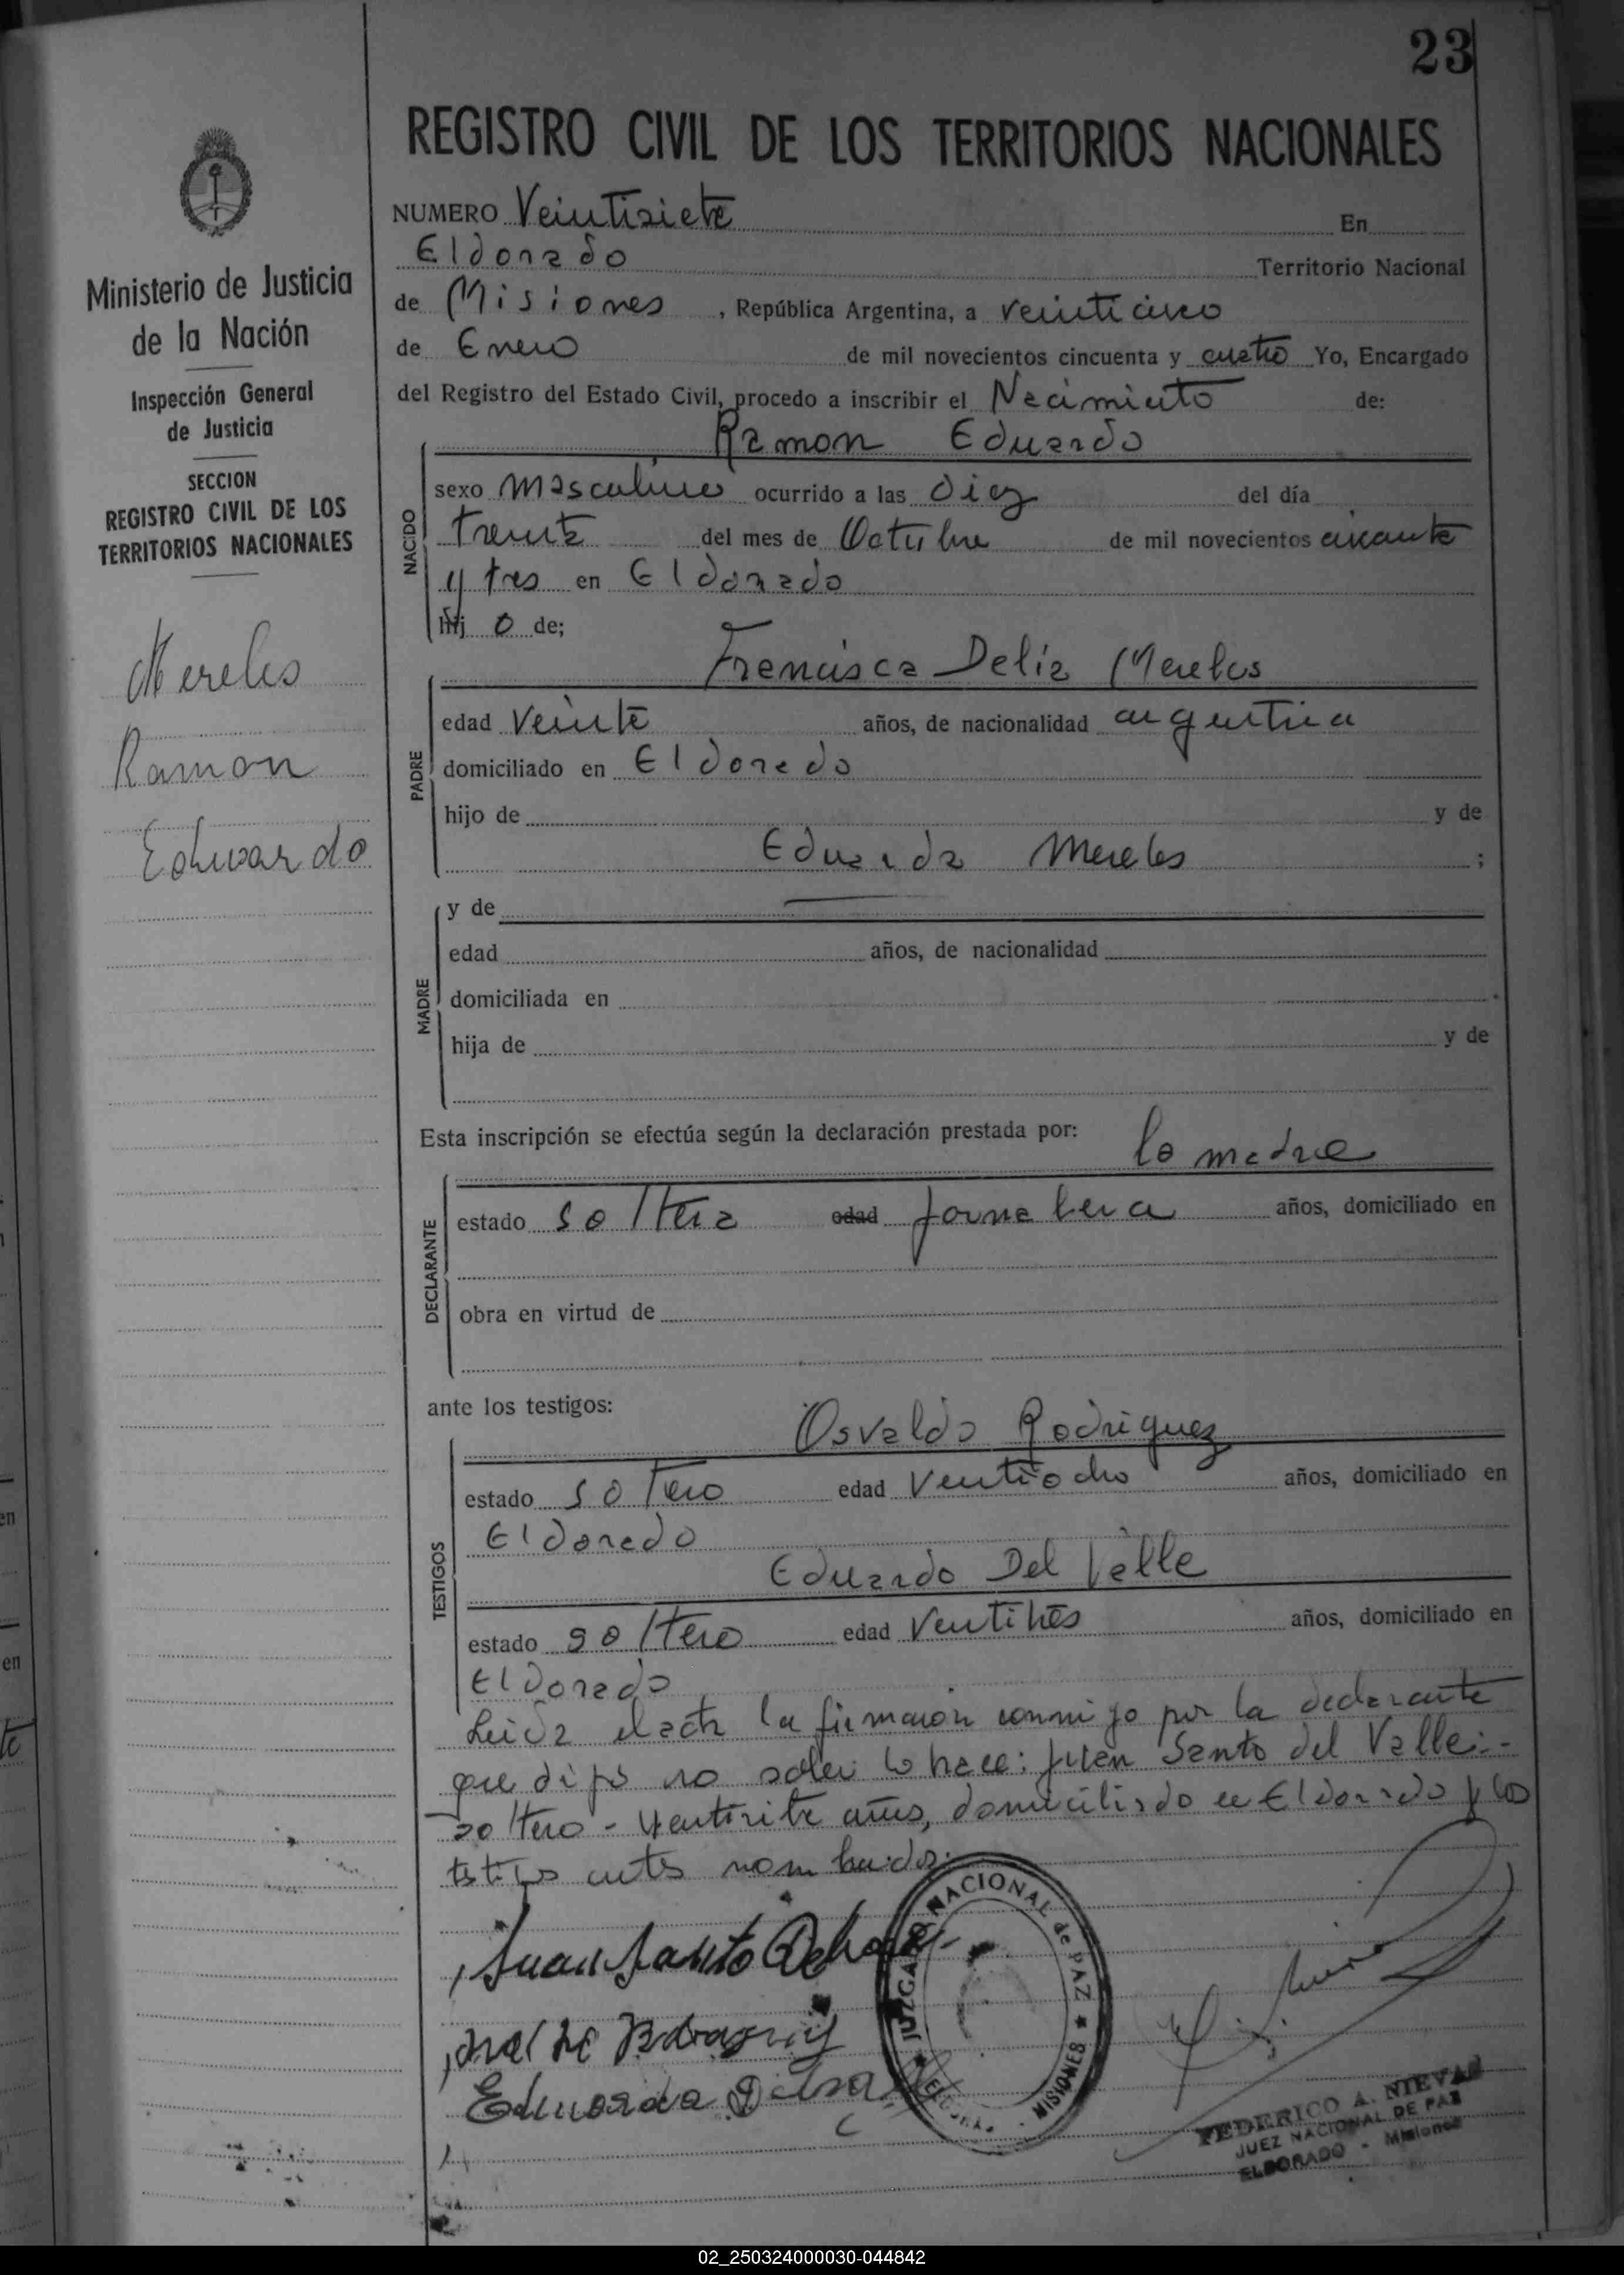 23
REGISTRO CIVIL DE LOS TERRITORIOS NACIONALES
Ministerio de Justicia
de la Nación
Inspección General
de Justicia
SECCION
REGISTRO CIVIL DE LOS
TERRITORIOS NACIONALES
Mereles
Ramon
Eduardo
NUMERO Veintisiete En
Eldorado Territorio Nacional
de Misiones , República Argentina, a veinticinco
de Enero de mil novecientos cincuenta y cuatro Yo, Encargado
del Registro del Estado Civil, procedo a inscribir el Nacimiento de:
Ramon Eduardo
NACIDO
sexo masculino ocurrido a las diez del día
treinta del mes de Octubre de mil novecientos cincuenta
y tres en Eldorado
hij o de;
Francisca Delia Mereles
PADRE
edad veinte años, de nacionalidad argentina
domiciliado en Eldorado
hijo de y de
Eduarda Mereles ;
MADRE
y de
edad años, de nacionalidad
domiciliada en
hija de y de
Esta inscripción se efectúa según la declaración prestada por: la madre
DECLARANTE
estado soltera edad jornalera años, domiciliado en
obra en virtud de
ante los testigos:
Osvaldo Rodriguez
TESTIGOS
estado soltero edad Ventiocho años, domiciliado en
Eldorado
Eduardo Del Valle
estado soltero edad Ventitres años, domiciliado en
Eldorado
Leida el acta la firmaron conmigo por la declarante
que dijo no saber lo hace: Juan Santo del Valle:-
soltero - ventisiete años, domiciliado en Eldorado y los
testigos antes nombrados.
Juan Santo
Eduardo
JUZGADO NACIONAL de PAZ ★ MISIONES
FEDERICO A. NIEVAS
JUEZ NACIONAL DE PAZ
ELDORADO - Misiones
02_250324000030-044842